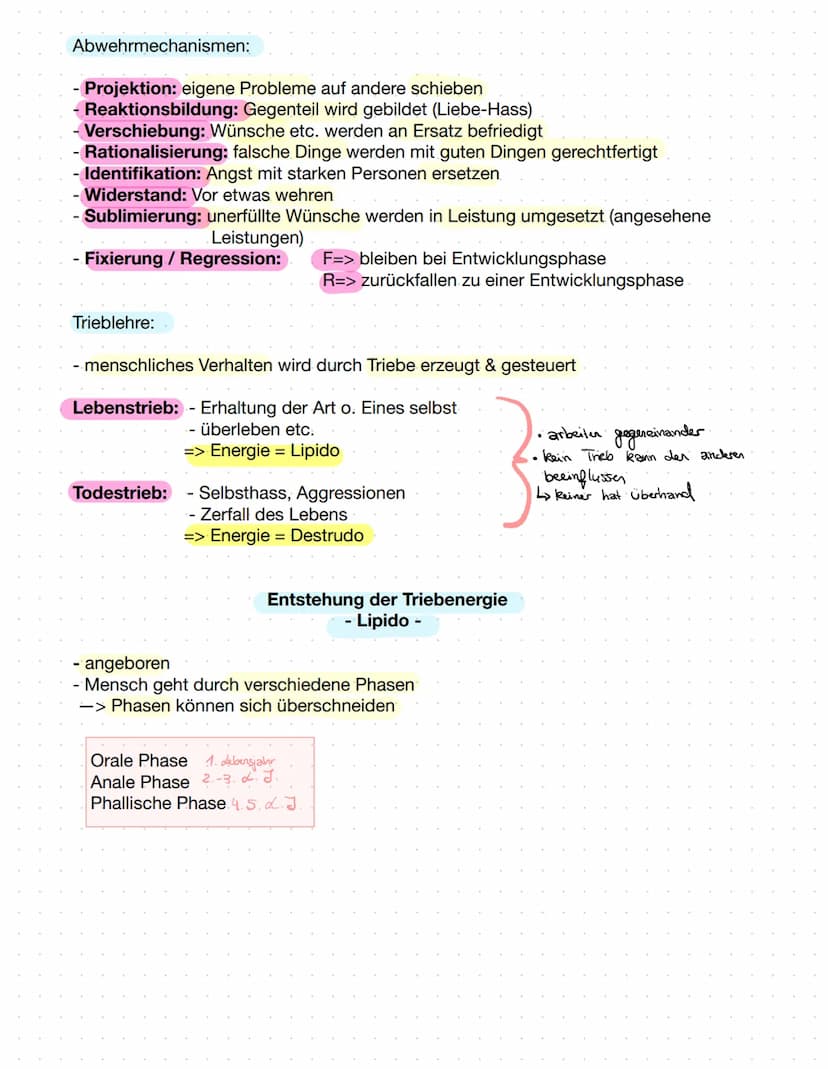 Abwehrmechanismen:
- Projektion: eigene Probleme auf andere schieben
- Reaktionsbildung: Gegenteil wird gebildet (Liebe-Hass)
- Verschiebung: Wünsche etc. werden an Ersatz befriedigt
- Rationalisierung: falsche Dinge werden mit guten Dingen gerechtfertigt
- Identifikation: Angst mit starken Personen ersetzen
- Widerstand: Vor etwas wehren
- Sublimierung: unerfüllte Wünsche werden in Leistung umgesetzt (angesehene
Leistungen)
- Fixierung / Regression: F=> bleiben bei Entwicklungsphase
R=> zurückfallen zu einer Entwicklungsphase
Trieblehre:
- menschliches Verhalten wird durch Triebe erzeugt & gesteuert
Lebenstrieb: - Erhaltung der Art o. Eines selbst
- überleben etc.
=> Energie = Lipido
Todestrieb: - Selbsthass, Aggressionen
- Zerfall des Lebens
=> Energie = Destrudo
• arbeiten gegeneinander
• kein Trieb kann den anderen
beeinflussen
↳ keiner hat überhand
Entstehung der Triebenergie
- Lipido -
- angeboren
- Mensch geht durch verschiedene Phasen
—> Phasen können sich überschneiden
Orale Phase 1. Lebensjahr
Anale Phase 2.-3. L. J.
Phallische Phase 4. 5. L. J.